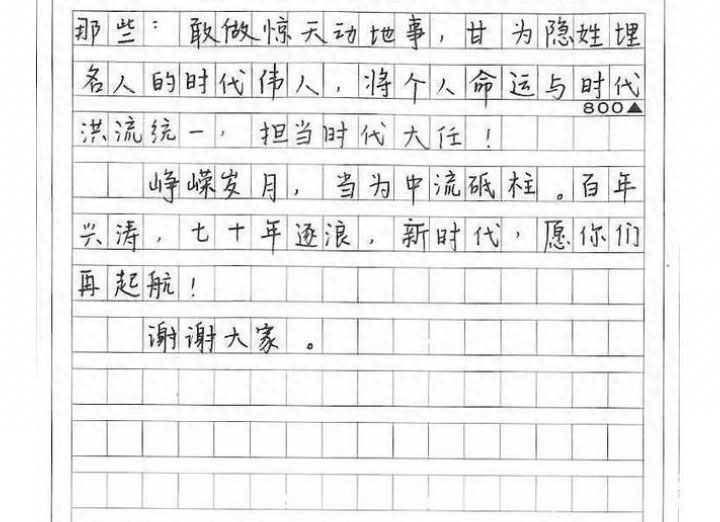 那些：敢做惊天动地事，甘为隐姓埋
名人的时代伟人，将个人命运与时代
800▲
洪流统一，担当时代大任！
峥嵘岁月，当为中流砥柱。百年
兴涛，七十年逐浪，新时代，愿你们
再起航！
谢谢大家。